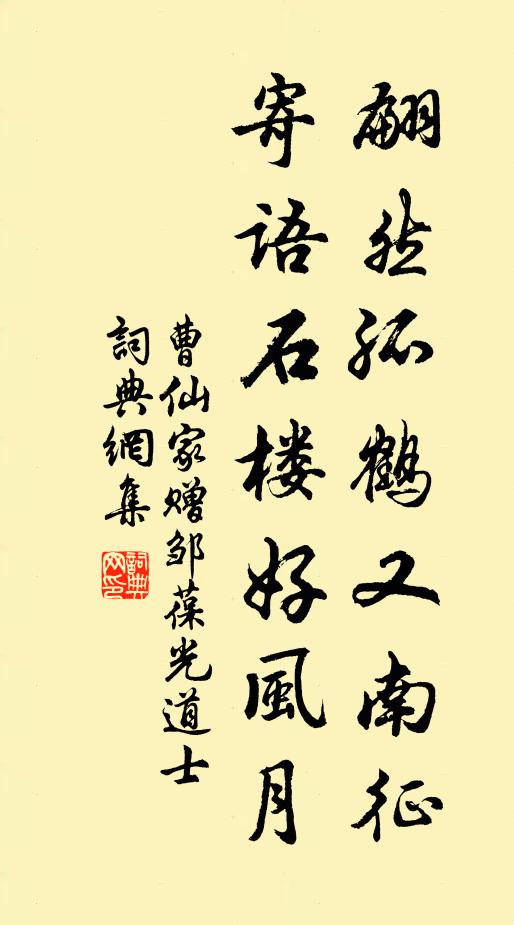 翩然孤鹤又南征
寄语石楼好風月
曹仙家赠邹葆光道士
詞典網集
詞典网印